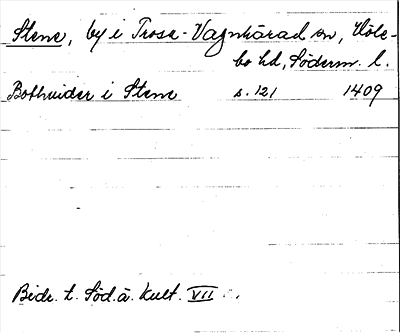 Stene, by i Trosa-Vagnhärad sn, Höle-
bo hd, Söderm. l.
Bothvider i Stene s. 121 1409
Bidr. t. Söd. ä. Kult. VII